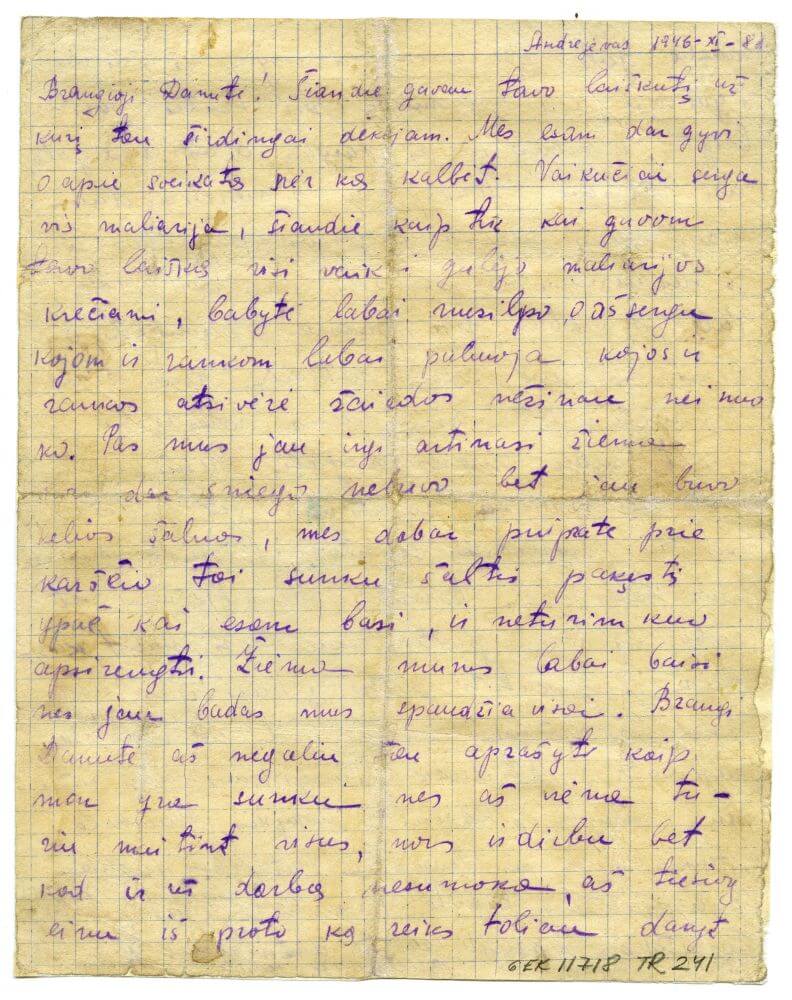 Andrejevas 1946-XI-8d
Brangioji Danute! Šiandie gavom tavo laiškutį už
kurį tau širdingai dėkojam. Mes esam dar gyvi
o apie sveikatą nėr ką kalbėt. Vaikučiai serga
vis maliarija, šiandie kaip tik kai gavom
tavo laišką visi vaikai gulėjo maliarijos
krečiami, babytė labai nusilpo, o aš sergu
kojom ir rankom labai puliuoja kojos ir
rankos atsivėrė žaizdos nežinau nei nuo
ko. Pas mus jau irgi artinasi žiema
nors dar sniego nebuvo bet jau buvo
kelios šalnos, mes dabar pripratę prie
karščio tai sunku šaltis pakęsti
ypač kai esam basi, ir neturim kuo
apsirengti. Žiema mums labai baisi
nes jau badas mus spaudžia visai. Brangi
Danute aš negaliu tau aprašyti kaip
man yra sunku nes aš viena tu-
riu maitint visus, nors ir dirbu bet
kad ir už darbą nesumoka, aš tiesiog
einu iš proto ką reiks toliau daryt
GEK 11718 TR 241